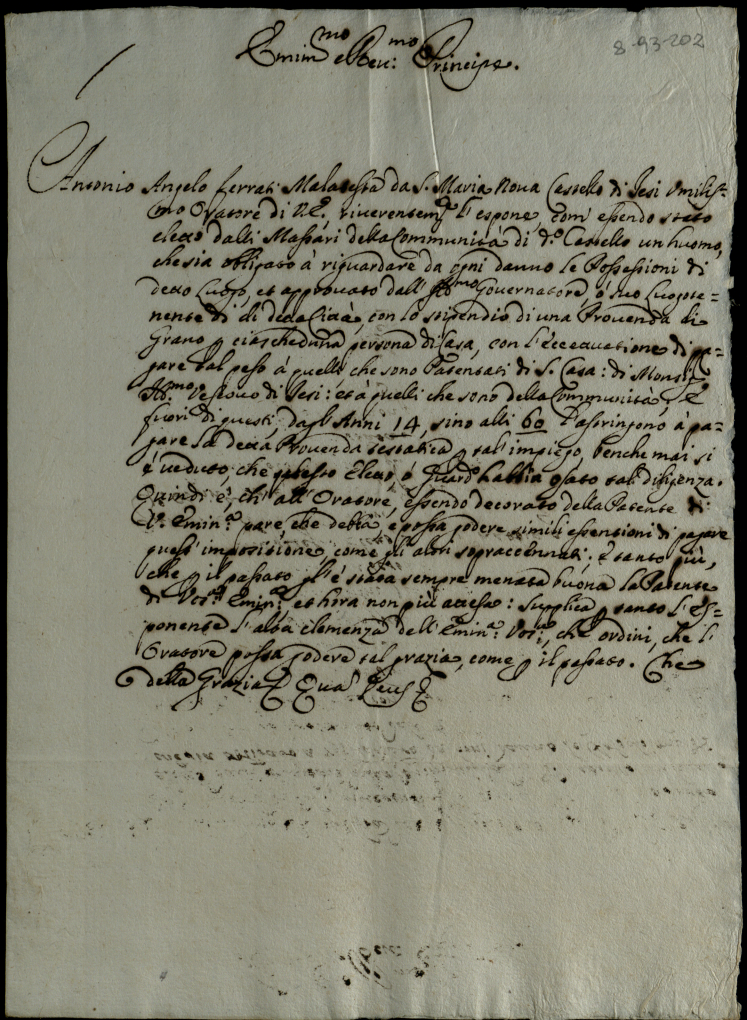 8-93-202
Emin:mo e Reu:mo Principe.
Antonio Angelo ferrati Malatesta da S. Maria Noua Castello di Jesi Vmilis=
mo Oratore di V.E. riuerentem.te l'espone, com' essendo stato
eletto dalli Massari della Communità di d.o Castello un huomo,
che sia obligato à riguardare da ogni danno le Possessioni di
detto Luogo, et approuato dall' Ill:mo Gouernatore, ò suo Luogote=
nente di di detta Città, con lo stipendio di una Prouenda di
Grano p ciascheduna persona di Casa, con l'eccettuatione di pa=
gare tal peso à quelli che sono Patentati di S. Casa: di Monsig.r
Ill:mo Vescouo di Jesi: et à quelli che sono della Communità, e
fuori di questi, dagl' Anni 14, sino alli 60 l'astringono à pa=
gare la detta Prouenda testatica p tal' impiego, benche mai si
è ueduto, che questo Eletto, ò Guard.o habbia usato tal diligenza.
Quindi è, ch' all' Oratore, essendo decorato della Patente di
V. Emin.a pare, che debba, e possa godere simili essentioni di pagare
quest' imposisione, come gl' altri sopraccennati; e tanto più,
che p il passato gl' è stata sempre menata buona la Patente
di Vos.a Emin.a et hora non più attesa: supplica p tanto l' Es=
ponente l' alta clemenza dell' Emin.a Vos.a, che ordini, che l'
Oratore possa godere tal grazia, come p il passato. Che
della Grazia Qua Deus